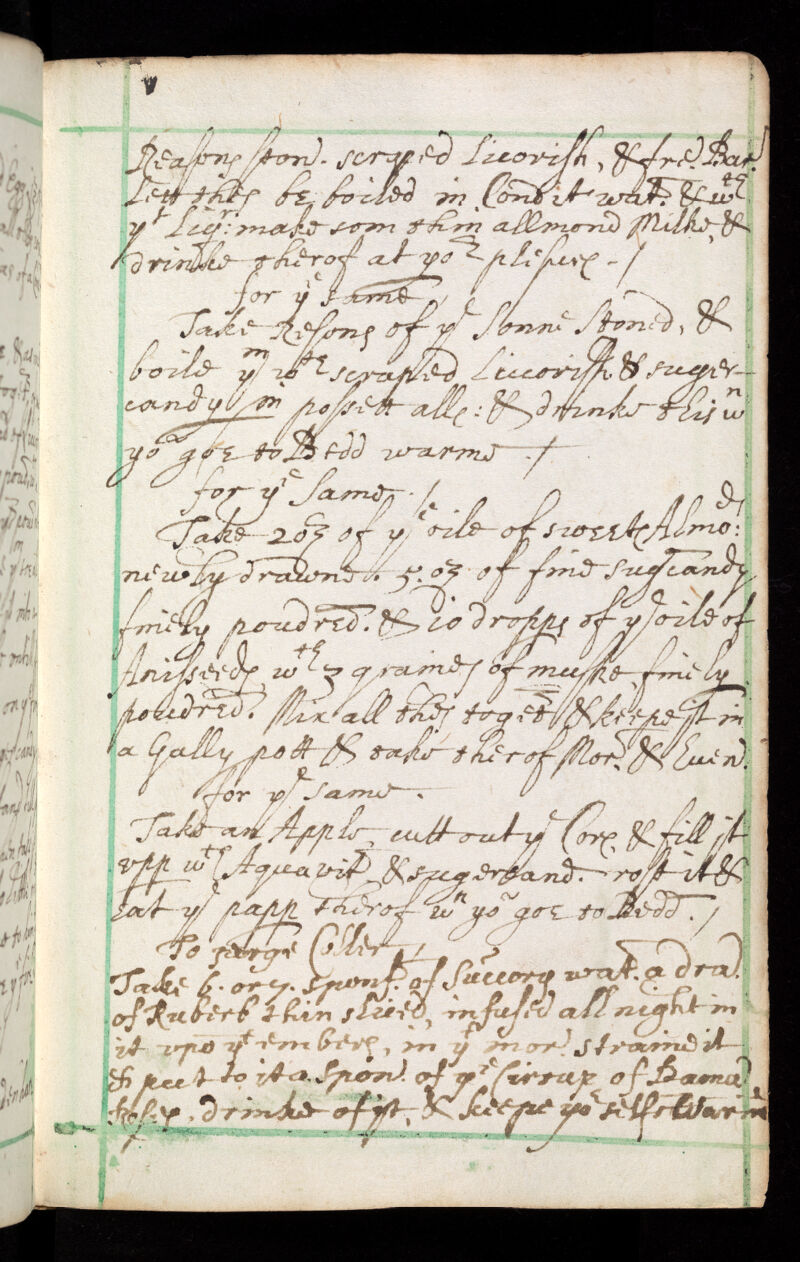 Reasons ston. scraped Licorish, & fre. Bar.
Lett thes be boiled in Condit wat. & wth
yt Liqr: make som thin allmond Milke, &
drinke therof at yor plesure - /
for ye same,
Take Resons of ye Sonne Stoned, &
boile ym wth scraped Licorish & suger
candy in possett alle: & drinke this wn
you goe to Bedd warme ./
for ye Same ./
Take 2 oz of ye oile of sweete Almod:
newly drawne. 5. oz of fine sugcandy
finely poudred. & 10 dropps of ye oile of
Anisseede wth 3 graines of muske finely
poudred. Mix all thes toget & keepe jt in
a Gally pott & take therof Mor. & Euen.
for ye same.
Take an Apple, cutt out ye Core & fill jt
vpp wt Aquavit & sugercand. rost it &
Eat ye papp therof wn you goe to Bedd. /
To purge Coller /
Take 6. or 7. sponf. of Succory wat. a dra.
of Ruberb thin sliced, infused all night in
it vpo ye embers, in ye mor. straine it
& put to it a spon. of ye Cirrup of Dama
Roses, drinke of jt, & keepe yor selfe Warme